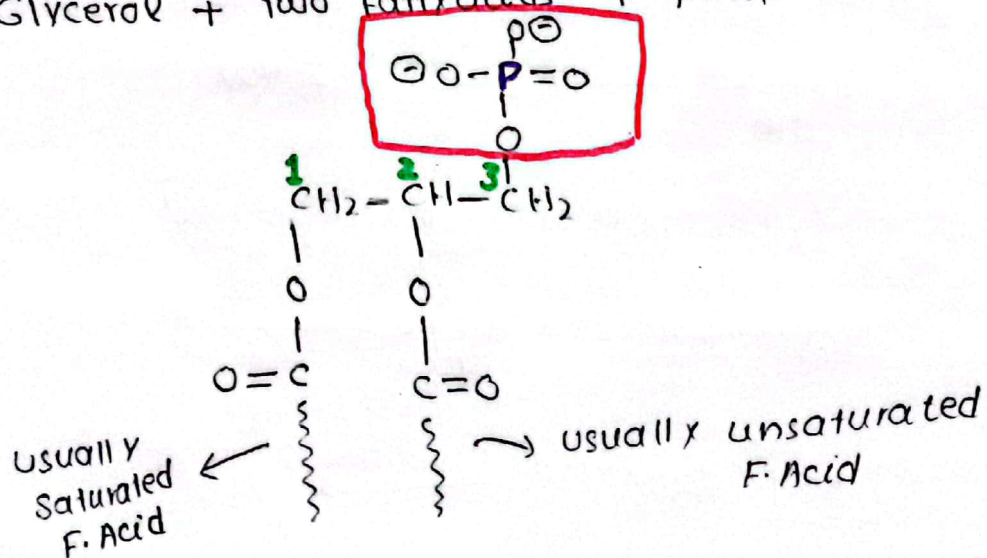 Glycerol + Two
P⊖
⊖ O-P=O
O
1 2 3
CH2-CH-CH2
O O
O=C C=O
usually
saturated
F. Acid
usually unsaturated
F. Acid